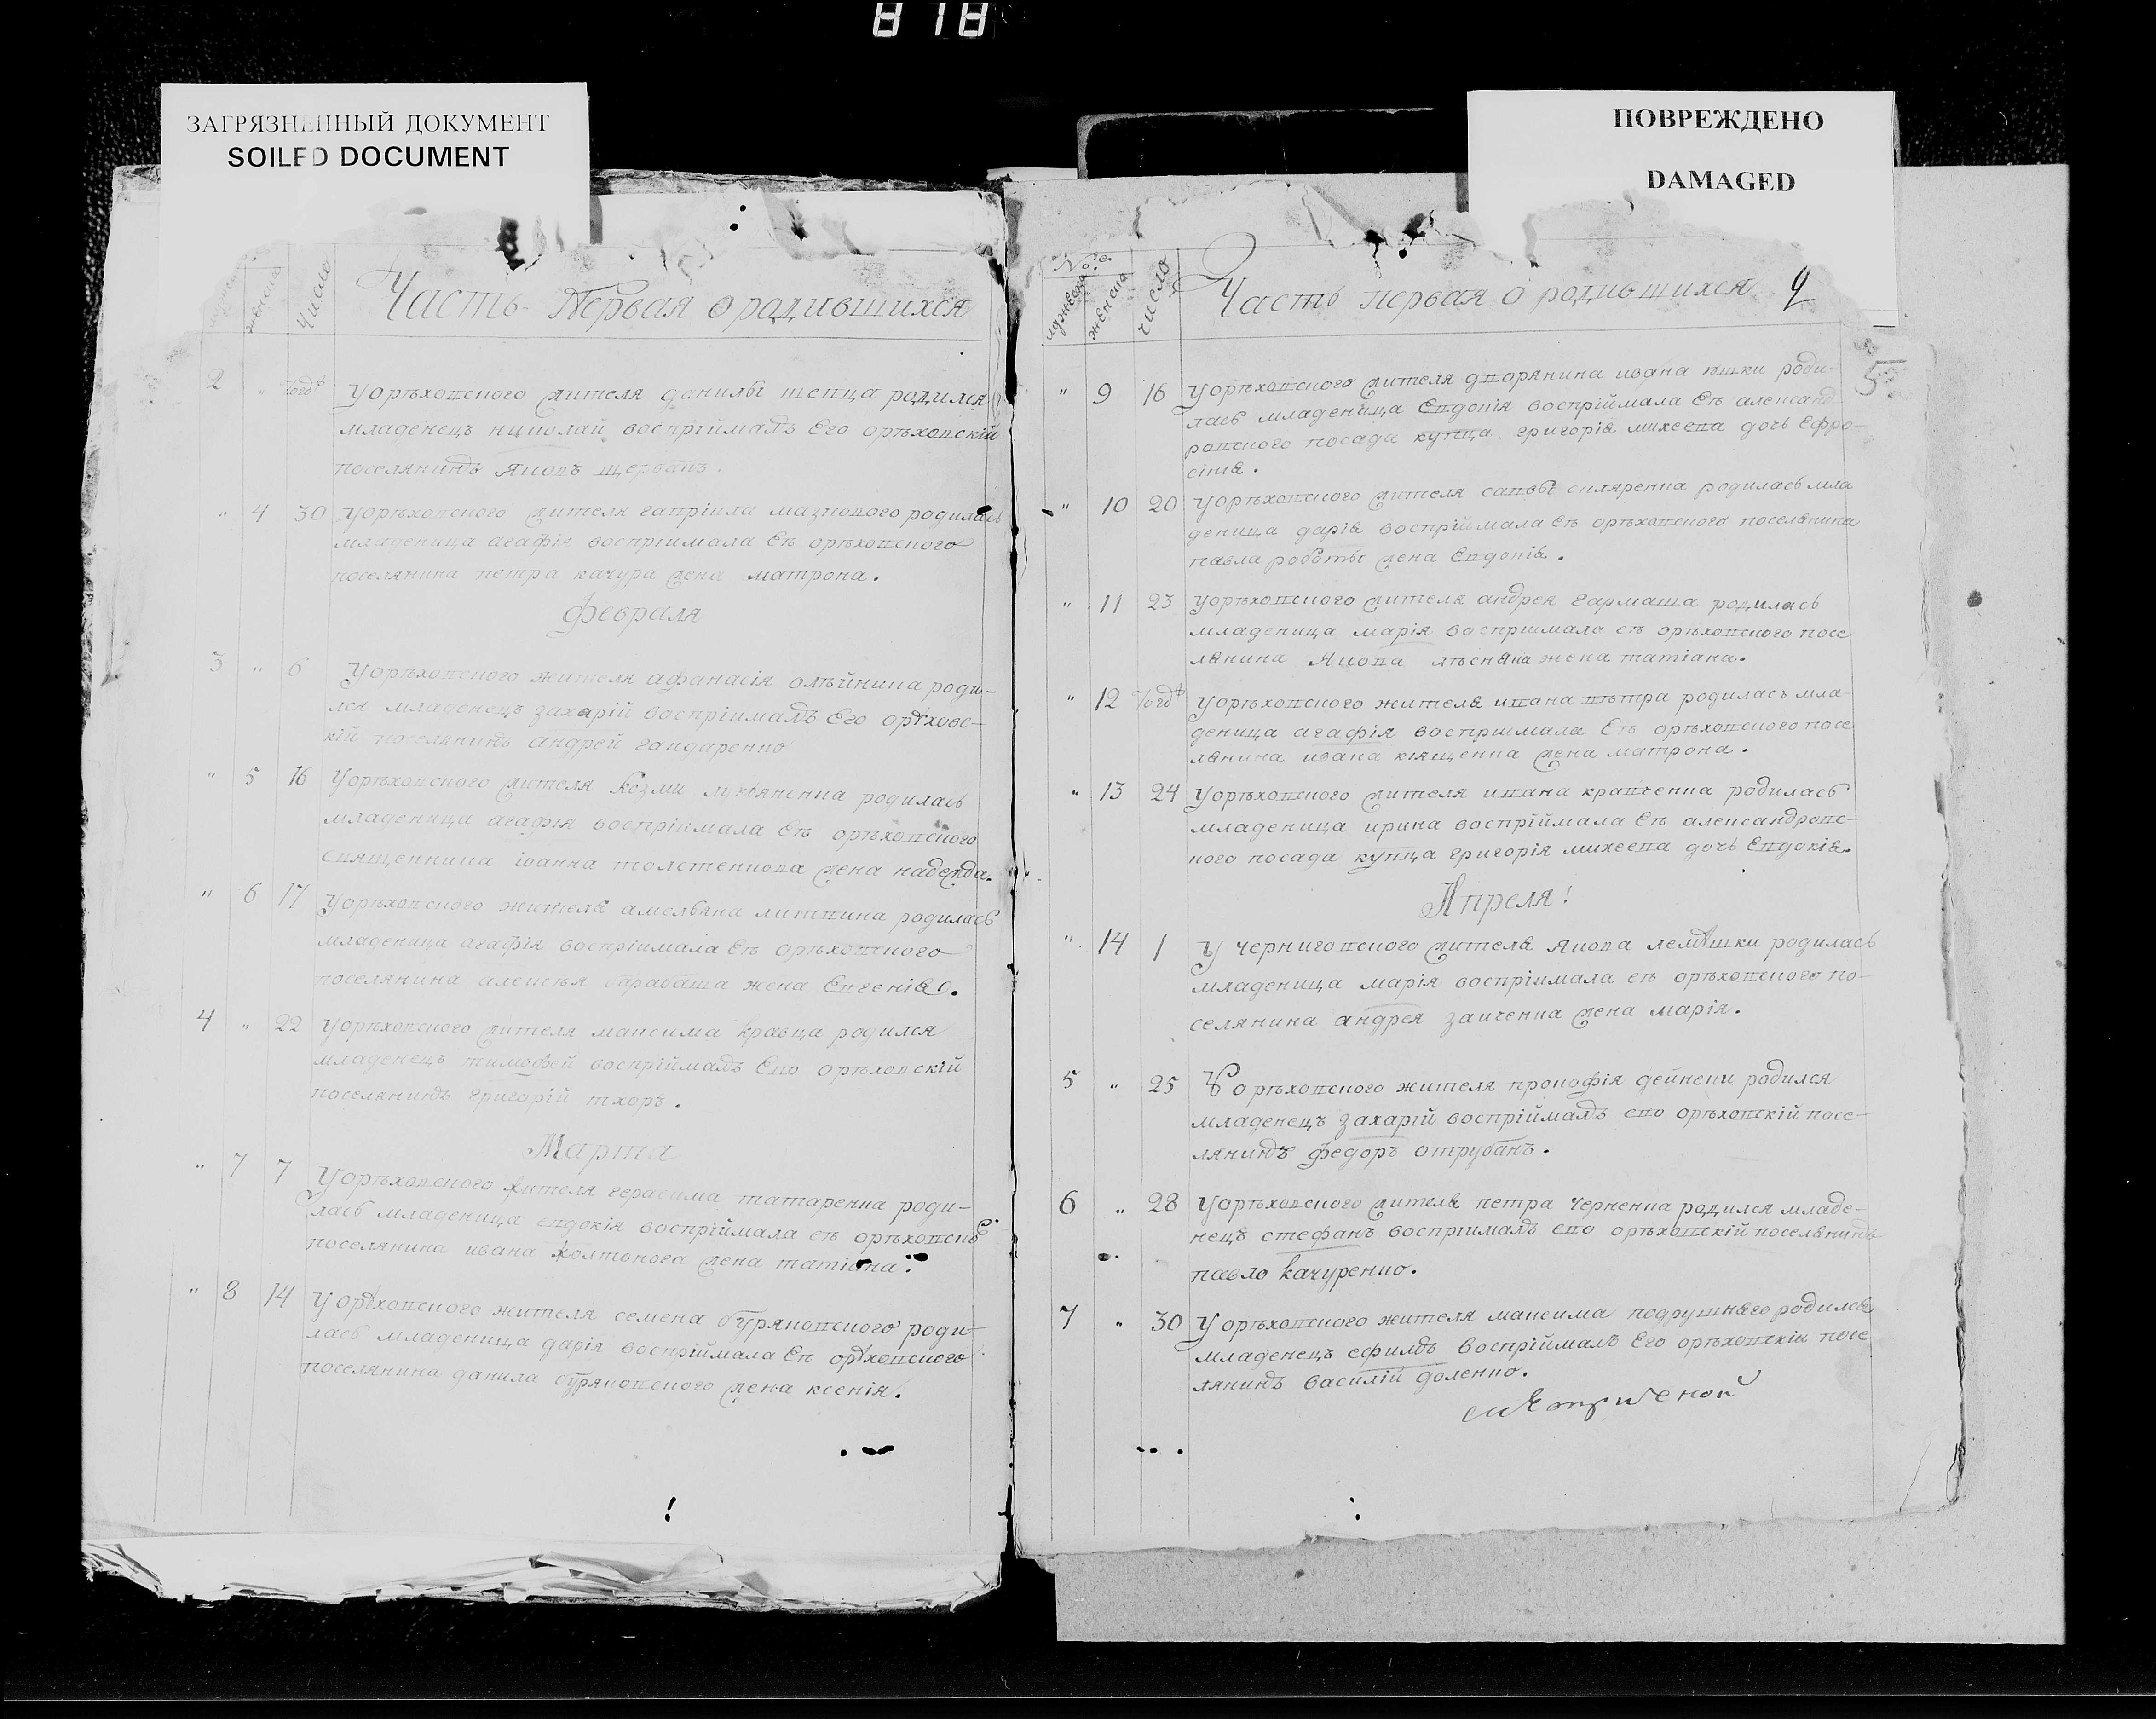 818
ЗАГРЯЗНЕННЫЙ ДОКУМЕНТ
SOILED DOCUMENT
женска
число
Часть Первая о родившихся
2 " тогдѣ Уорѣховского жителя данилы шевца родился
младенецъ николай воспріймалъ Его орѣховскій
поселянинъ Яковъ щербань.
" 4 30 Уорѣховского жителя гавріила мазкового родилась
младеница агафія воспріимала Еѣ орѣховского
поселянина петра качура жена матрона.
Февраля
3 " 6 Уорѣховского жителя афанасія олѣйника роди-
лся младенецъ захарій воспріималъ Его орѣховс-
кій поселянинъ андрей гайдаренко
" 5 16 Уорѣховского жителя Козми лукяненка родилась
младеница агафія воспріимала Еѣ орѣховского
священника іоанна толстенкова жена надежда.
" 6 17 Уорѣховского жителя амеляна литвина родилась
младеница агафія воспріимала Еѣ орѣховского
поселянина алексѣя барабаша жена Евгенія.
4 " 22 Уорѣховского жителя максима кравца родился
младенецъ тимофей воспріймалъ Ево орѣховскій
поселянинъ григорій тхоръ.
Марта
" 7 7 Уорѣховского жителя герасима татаренка роди-
лась младеница евдокія воспріймала еѣ орѣховско
поселянина ивана жолтонога жена татіана.
" 8 14 Уорѣховского жителя семена буряковского роди-
лась младеница дарія воспріймала Еѣ орѣховского
поселянина данила буряковского жена ксенія.
ПОВРЕЖДЕНО
DAMAGED
№е
мужеска
женска
число
Часть первая о родившихся
5
" 9 16 Уорѣховского жителя дворянина ивана роди-
лась младеница Евдокія воспріймала Еѣ александ-
ровского посада купца григорія михеева дочь Ефро-
сінія.
" 10 20 Уорѣховского жителя саввы скляренка родилась мла
деница дарія воспріймала Еѣ орѣховского поселянина
павла роботы жена Евдокія.
" 11 23 Уорѣховского жителя андрея гармаша родилась
младеница марія воспріимала еѣ орѣховского посе
лянина Якова лѣсняка жена татіана.
" 12 тогдѣ Уорѣховского жителя ивана вѣтра родилась мла-
деница агафія воспріимала Еѣ орѣховского посе
лянина ивана кіященка жена матрона.
" 13 24 Уорѣховского жителя ивана кравченка родилась
младеница ирина воспріймала Еѣ александровс-
кого посада купца григорія михеева дочь Евдокія.
Апреля!
" 14 1 У черниговского жителя Якова лемѣшки родилась
младеница марія воспріимала еѣ орѣховского по-
селянина андрея заиченка жена марія.
5 " 25 У орѣховского жителя прокофія дейнеки родился
младенецъ захарій воспріймалъ ево орѣховскій посе-
лянинъ федоръ отрубанъ.
6 " 28 Уорѣховского жителя петра Черненка родился младе-
нецъ стефанъ воспріималъ ево орѣховскій поселянинъ
павло Качуренко.
7 " 30 Уорѣховского жителя максима подрушняго родился
младенецъ ефилъ воспріймалъ Его орѣховскіи посе
лянинъ василій доленко.